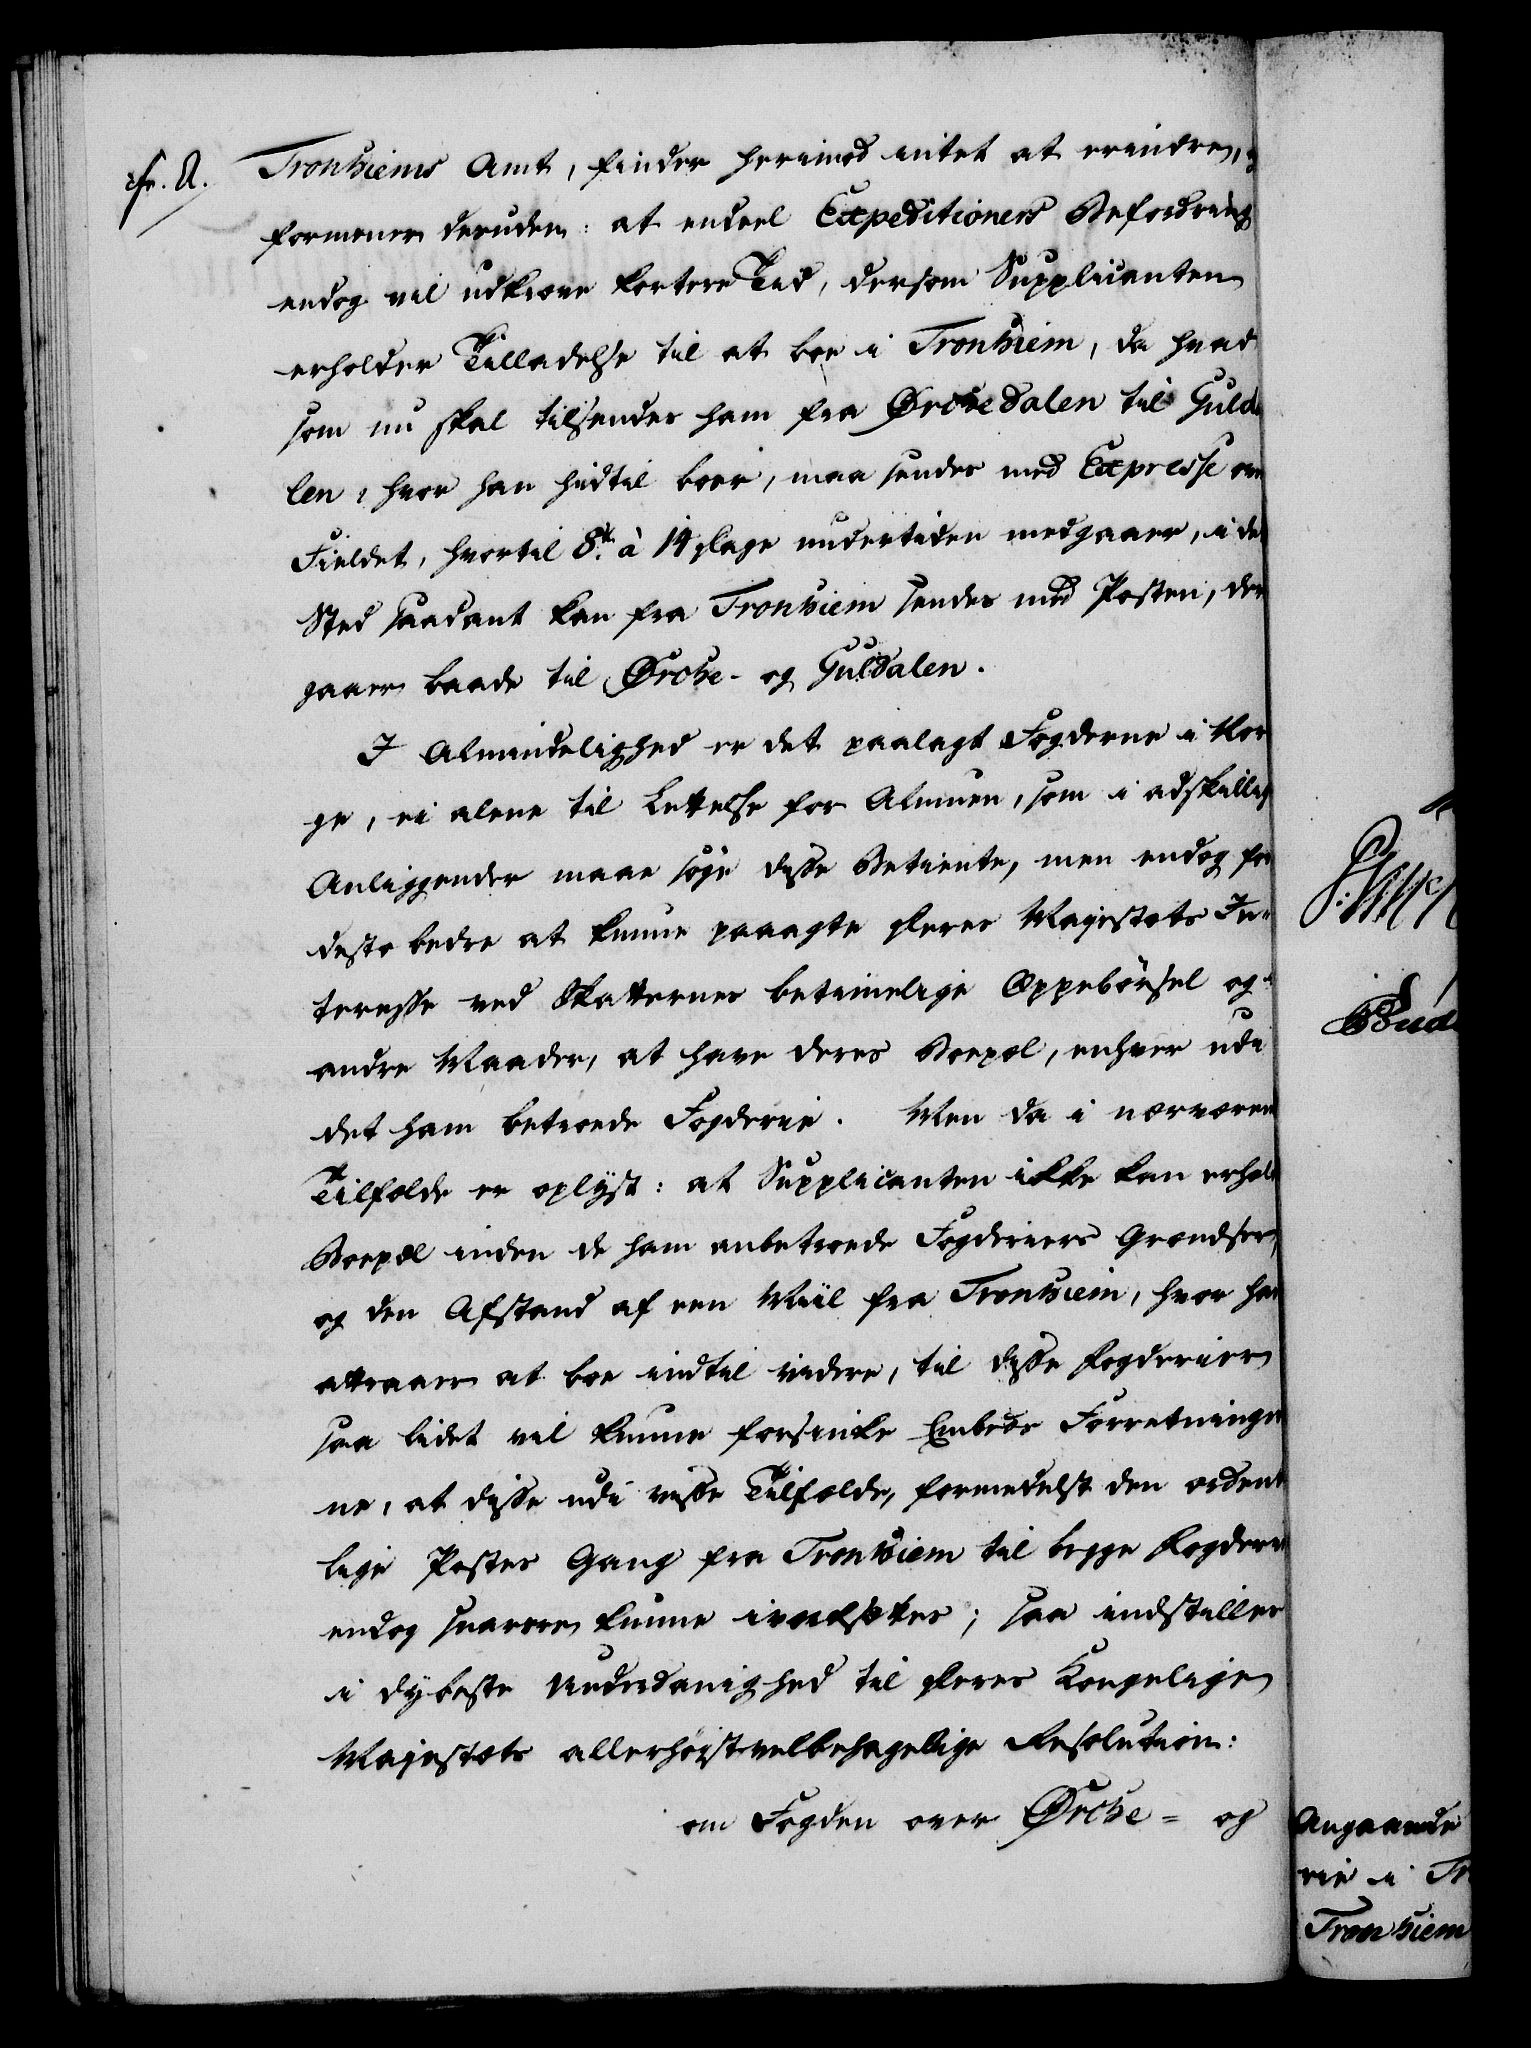 cfr. A.
Tronhiems Amt, finder herimod intet at erindre,
formener desuden: at endeel Expeditioners Befordring
endog vil udkræve kortere Tid, dersom Supplicanten
erholder Tilladelse til at boe i Tronhiem, da hvad
som nu skal tilsendes ham fra Ørckedalen til Gulda
len, hvor han hidtil boer, maa sendes med Expresse over
Fieldet, hvortil 8te à 14 Dage undertiden medgaaer, i det
Sted saadant kan fra Tronhiem sendes med Posten, der
gaaer baade til Ørcke- og Guldalen.
I Almindelighed er det paalagt Fogderne i Nor
ge, ei alene til Lettelse for Almuen, som i adskillige
Anliggender maae søge disse Betiente, men endog for
desto bedre at kunne paaagte Deres Majestæts In-
teresse ved Skatternes betimelige Oppebørsel og i
andre Maader, at have deres Boepæl, enhver udi
det ham betroede Fogderie. Men da i nærværende
Tilfælde er oplyst: at Supplicanten ikke kan erholde
Boepæl inden de ham anbetroede Fogderiers Grændser,
og den Afstand af een Miil fra Tronhiem, hvor han
attraaer at boe indtil videre, til disse Fogderier
saa lidet vil kunne forsinke Embeds Forretninger
ne, at disse udi visse Tilfælde, formedelst den ordent
lige Postes Gang fra Tronhiem til begge Fogderier
endog snarere kunne iværksættes; saa indstilles
i dybeste Underdanighed til Deres Kongelige
Majestæts allerhøistvelbehagelige Resolution:
om Fogden over Ørcke- og
Angaaende
rie i Tr
Tronhiem